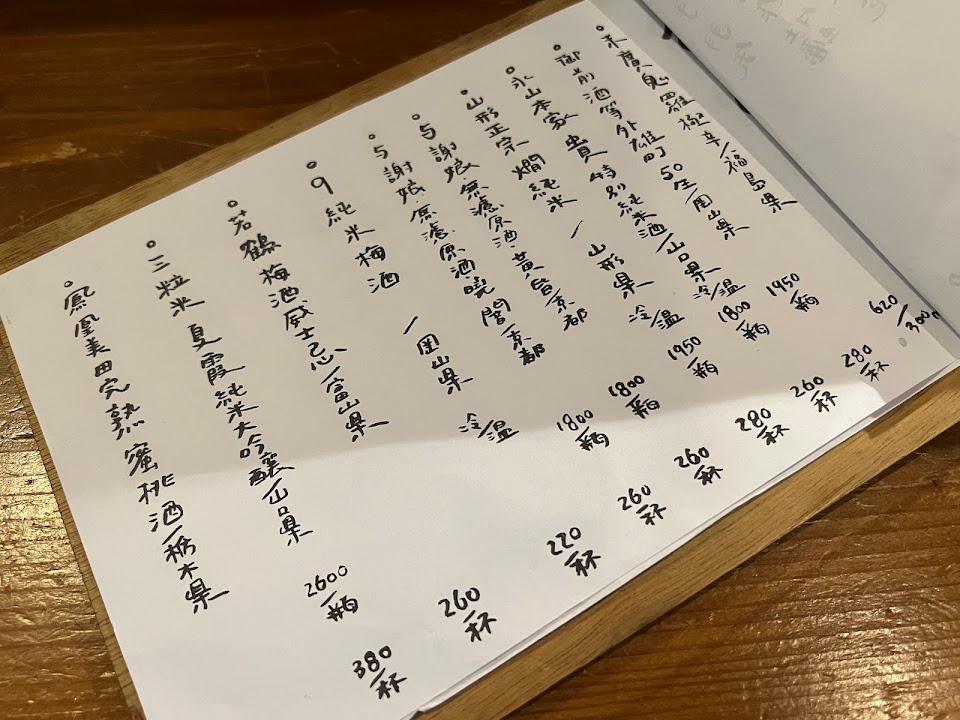 末廣鬼羅極辛/福島県 620/300m
御前酒等外雄町50年/岡山県 1950/瓶 280/杯
永山本家 貴 特別純米酒/山口県 冷/温 1800/瓶 260/杯
山形正宗 燗純米 / 山形県 冷/温 1950/瓶 280/杯
与謝娘·無濾原酒·黃 /京都 1800/瓶 260/杯
与謝娘·原濾原酒·曉闇/京都 1800/瓶 260/杯
9 純米梅酒 /岡山県 冷/温 220/杯
若鶴梅酒威士忌/富山県 260/杯
三粒米 夏霞純米大吟釀/山口県 2600/瓶 380/杯
鳳凰美田完熟蜜桃酒/栃木県